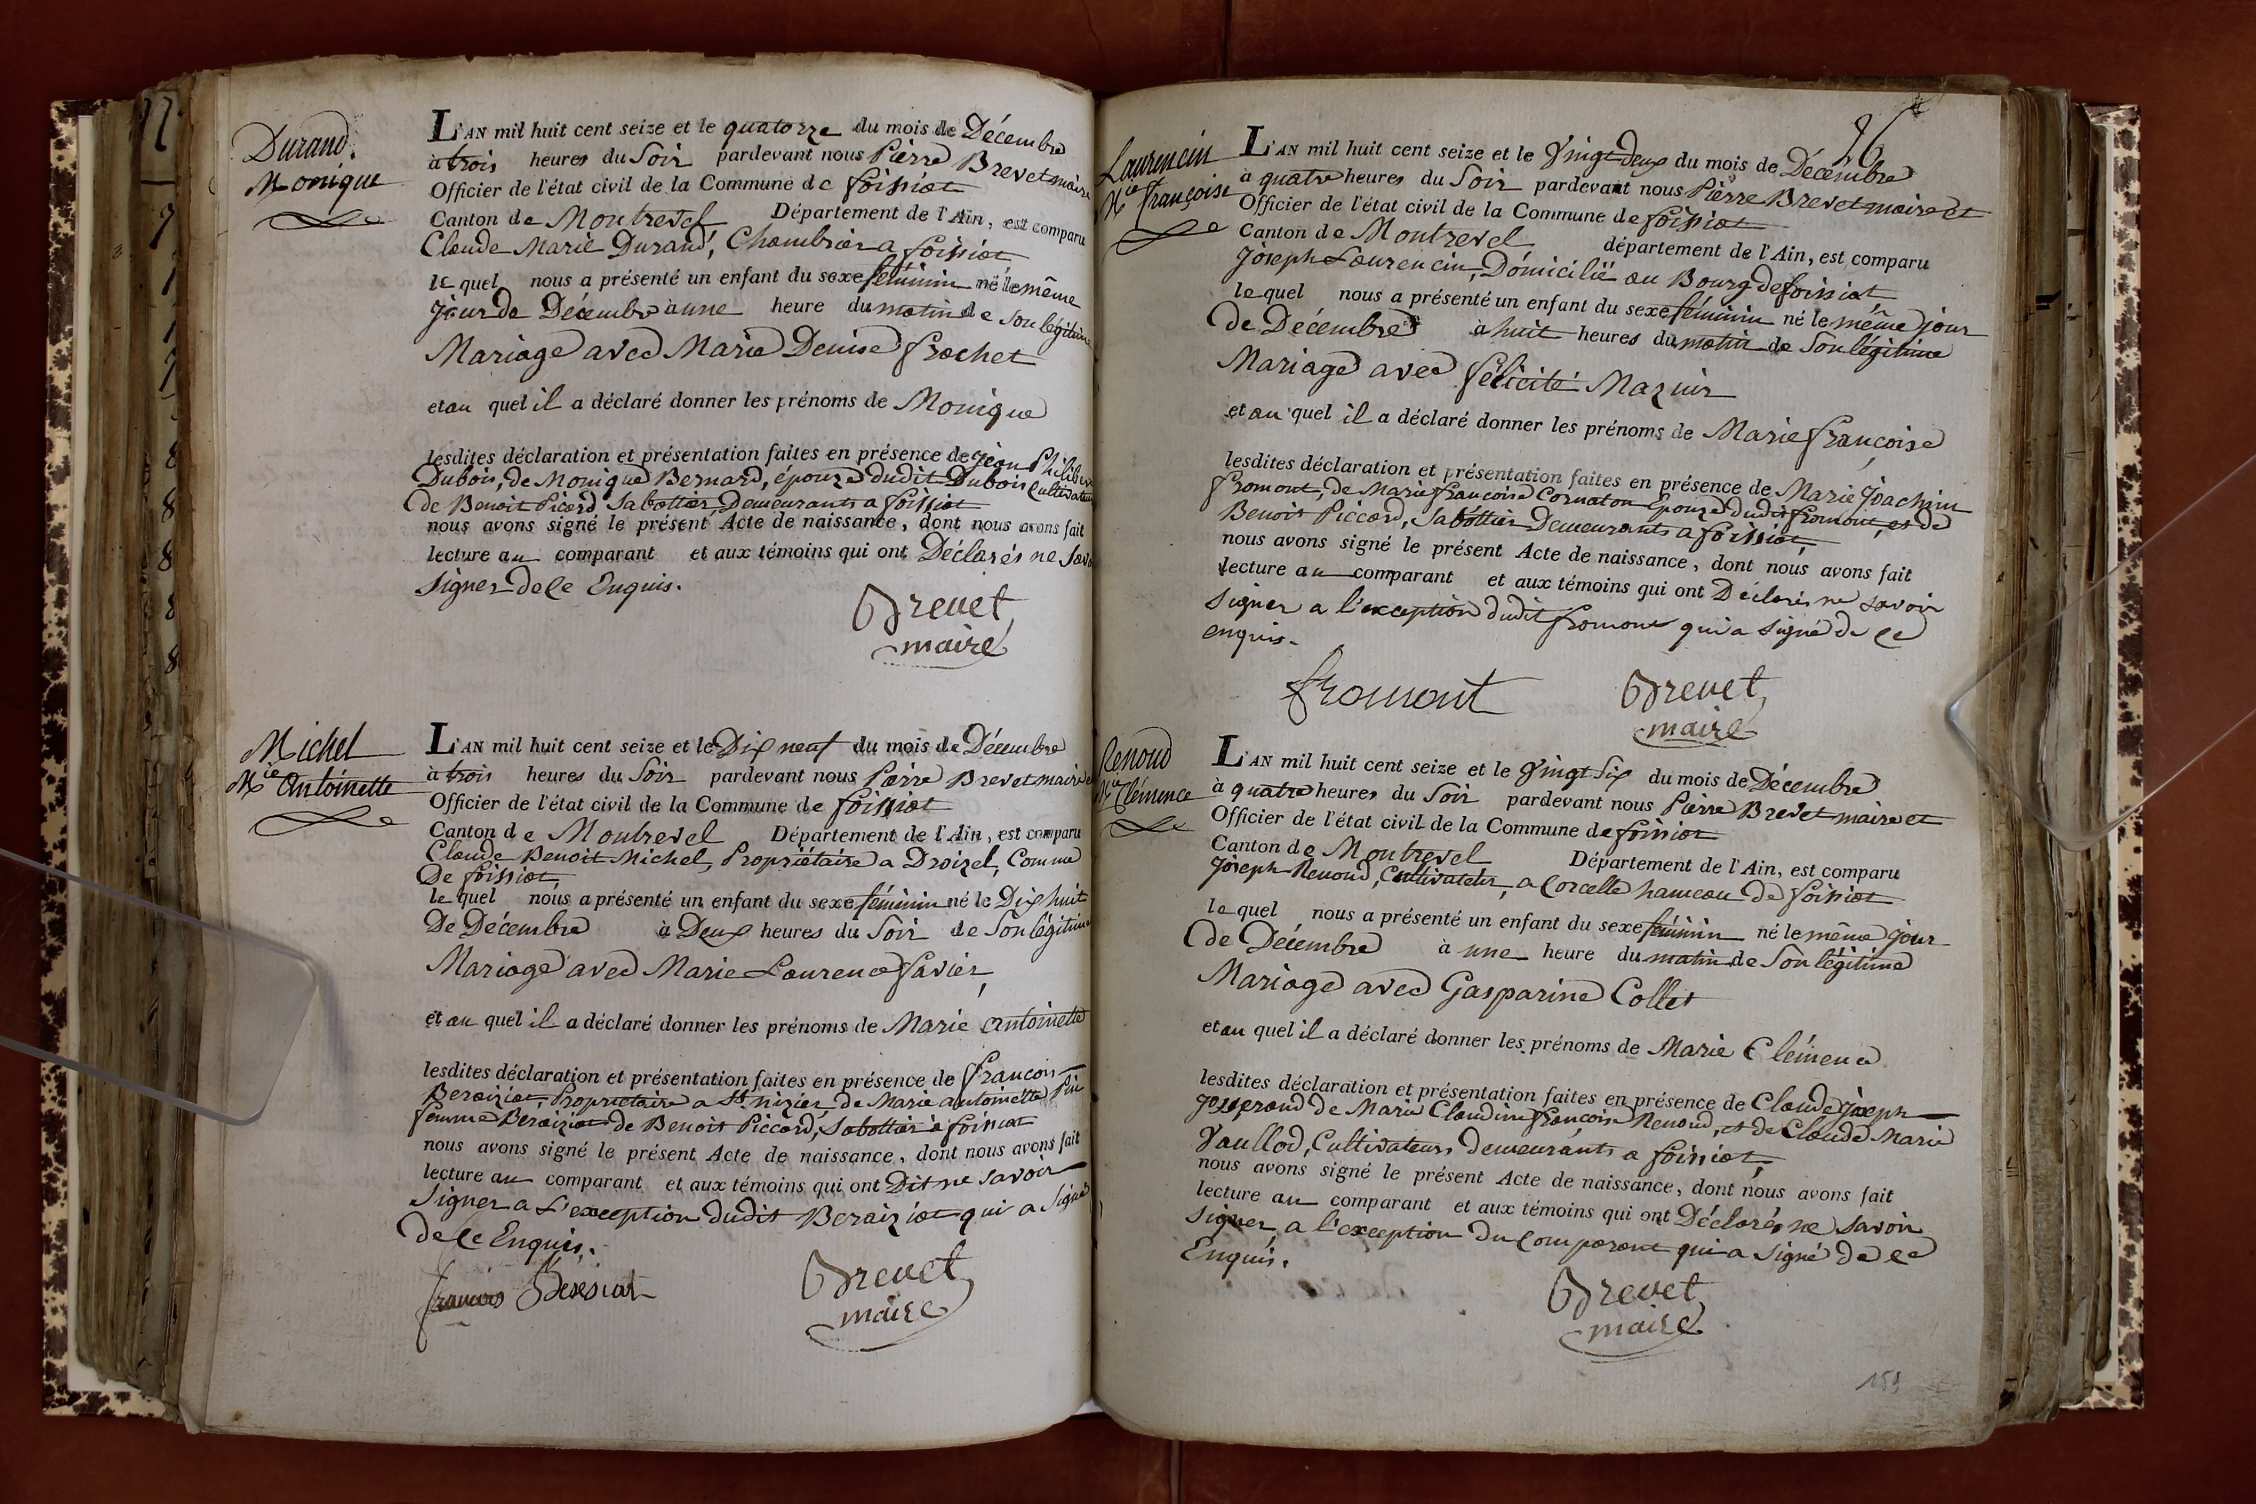 Durand.
Monique
L'AN mil huit cent seize et le quatorze du mois de Décembre
à trois heures du Soir pardevant nous Pierre Brevet maire
Officier de l'état civil de la Commune de foissiat
Canton de Montrevel Département de l'Ain, est comparu
Claude Marie Durand, Chambrier a foissiat
le quel nous a présenté un enfant du sexe féminin né le même
jour de Décembre à une heure du matin de son légitime
Mariage avec Marie Denise frachet
et au quel il a déclaré donner les prénoms de Monique
lesdites déclaration et présentation faites en présence de jean Philibert
Dubois, de Monique Bernard, épouze dudit Dubois Cultivateurs
de Benoit Picard Sabottier, Demeurants a foissiat
nous avons signé le présent Acte de naissance, dont nous avons fait
lecture au comparant et aux témoins qui ont Déclarés ne Savoir
Signer de ce Enquis.
Brevet
maire
Michel
Mie Antoinette
L'AN mil huit cent seize et le Dix neuf du mois de Décembre
à trois heures du Soir pardevant nous Pierre Brevet maire et
Officier de l'état civil de la Commune de foissiat
Canton de Montrevel Département de l'Ain, est comparu
Claude Benoit Michel, Propriétaire a Droizel, Comme
De foissiat
le quel nous a présenté un enfant du sexe féminin né le Dix huit
De Décembre à Deux heures du Soir de Son légitime
Mariage avec Marie Laurence favier,
et au quel il a déclaré donner les prénoms de Marie antoinette
lesdites déclaration et présentation faites en présence de francois
Beraiziat, Propriétaire a St nizier, de Marie antoinette Pin
femme Beraiziat de Benoit Piccard, Sabottier à foissiat
nous avons signé le présent Acte de naissance, dont nous avons fait
lecture au comparant et aux témoins qui ont Dit ne Savoir
Signer a L'exception dudit Beraiziat qui a Signé
de ce Enquis.
francois Beresiat
Brevet
maire
26
Laurencin
Mie françoise
L'AN mil huit cent seize et le Vingt deux du mois de Décembre
à quatre heures du Soir pardevant nous Pierre Brevet maire et
Officier de l'état civil de la Commune de foissiat
Canton de Montrevel département de l'Ain, est comparu
Joseph Laurencin, Domicilié au Bourg de foissiat
le quel nous a présenté un enfant du sexe féminin né le même jour
de Décembre à huit heures du matin de Son légitime
Mariage avec félicité Mazuir
et au quel il a déclaré donner les prénoms de Marie françoise
lesdites déclaration et présentation faites en présence de Marie Joachim
fromont, de Marie françoise Cornaton Epouze dudit fromont, et de
Benoit Piccard, Sabottier Demeurants a foissiat,
nous avons signé le présent Acte de naissance, dont nous avons fait
lecture au comparant et aux témoins qui ont Déclarés ne savoir
Signer a l'exception dudit fromont qui a signé de ce
enquis.
fromont
Brevet
maire
Renoud
Mie Clémence
L'AN mil huit cent seize et le Vingt Six du mois de Décembre
à quatre heures du Soir pardevant nous Pierre Brevet maire et
Officier de l'état civil de la Commune de foissiat
Canton de Montrevel Département de l'Ain, est comparu
Joseph Renoud, Cultivateur, a Corcelle hameau de foissiat
le quel nous a présenté un enfant du sexe féminin né le même jour
de Décembre à une heure du matin de Son légitime
Mariage avec Gasparine Collet
et au quel il a déclaré donner les prénoms de Marie Clémence
lesdites déclaration et présentation faites en présence de Claude joseph
Josserand de Marie Claudine françoise Renoud, et de Claude Marie
Vaullod, Cultivateurs demeurants a foissiat,
nous avons signé le présent Acte de naissance, dont nous avons fait
lecture au comparant et aux témoins qui ont Déclarés ne savoir
Signer, a l'exception du Comparant qui a Signé de ce
Enquis.
Brevet
maire
159